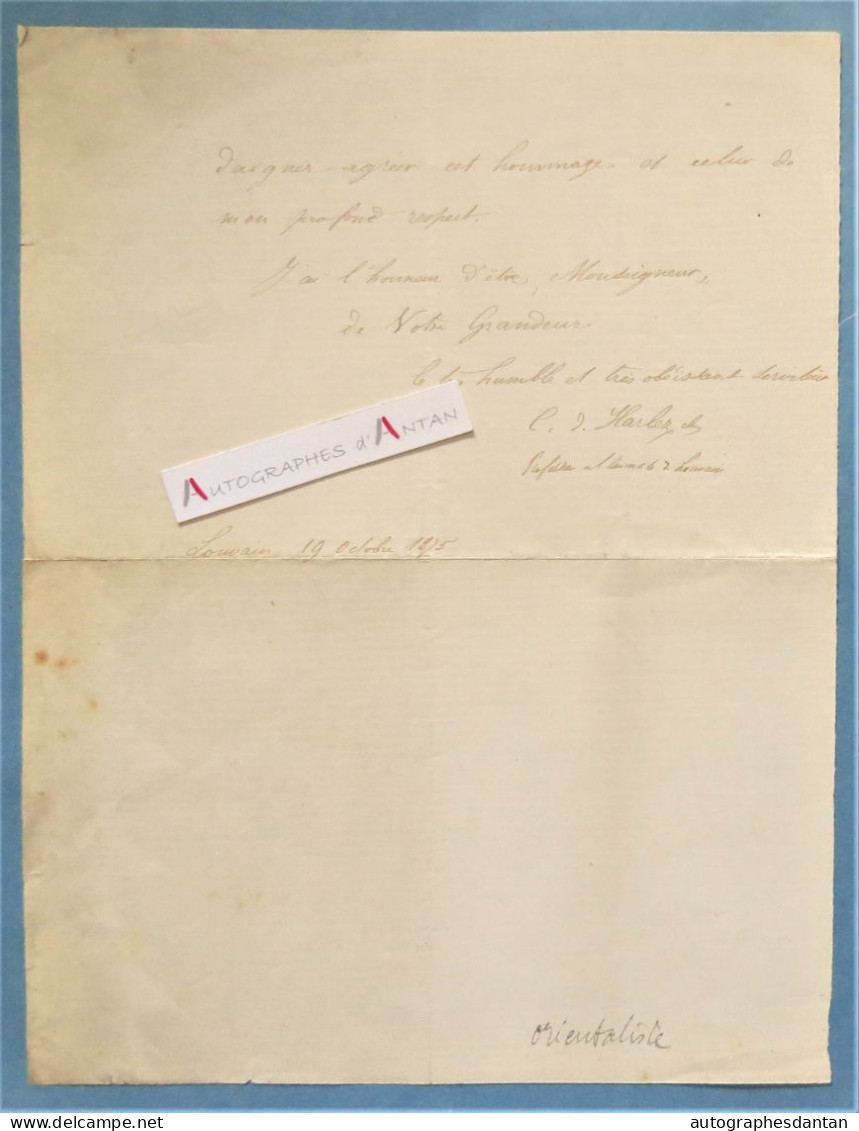 daigner agréer cet hommage et celui de
mon profond respect.
J'ai l'honneur d'être, Monseigneur,
de Votre Grandeur
le très humble et très obéissant serviteur
C. d. Harlez
Louvain
AUTOGRAPHES d'ANTAN
Louvain 19 Octobre 1875
orientaliste
delcampe.net
autographesdantan